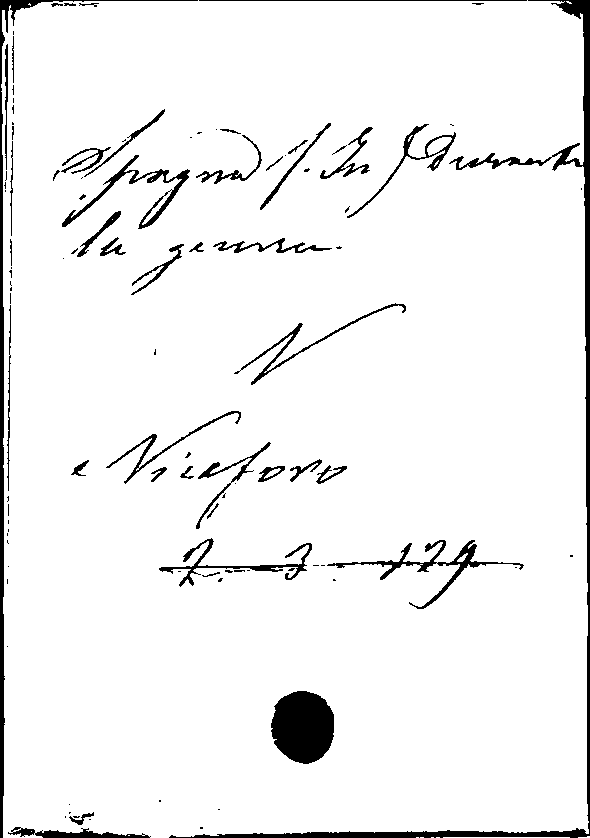 Spagna (. In) Durante
la guerra.
N
e Niceforo
2. 3 129